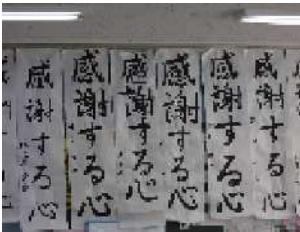 感謝する心
感謝する心
感謝する心
感謝する心
感謝する心
感謝する心
感謝する心